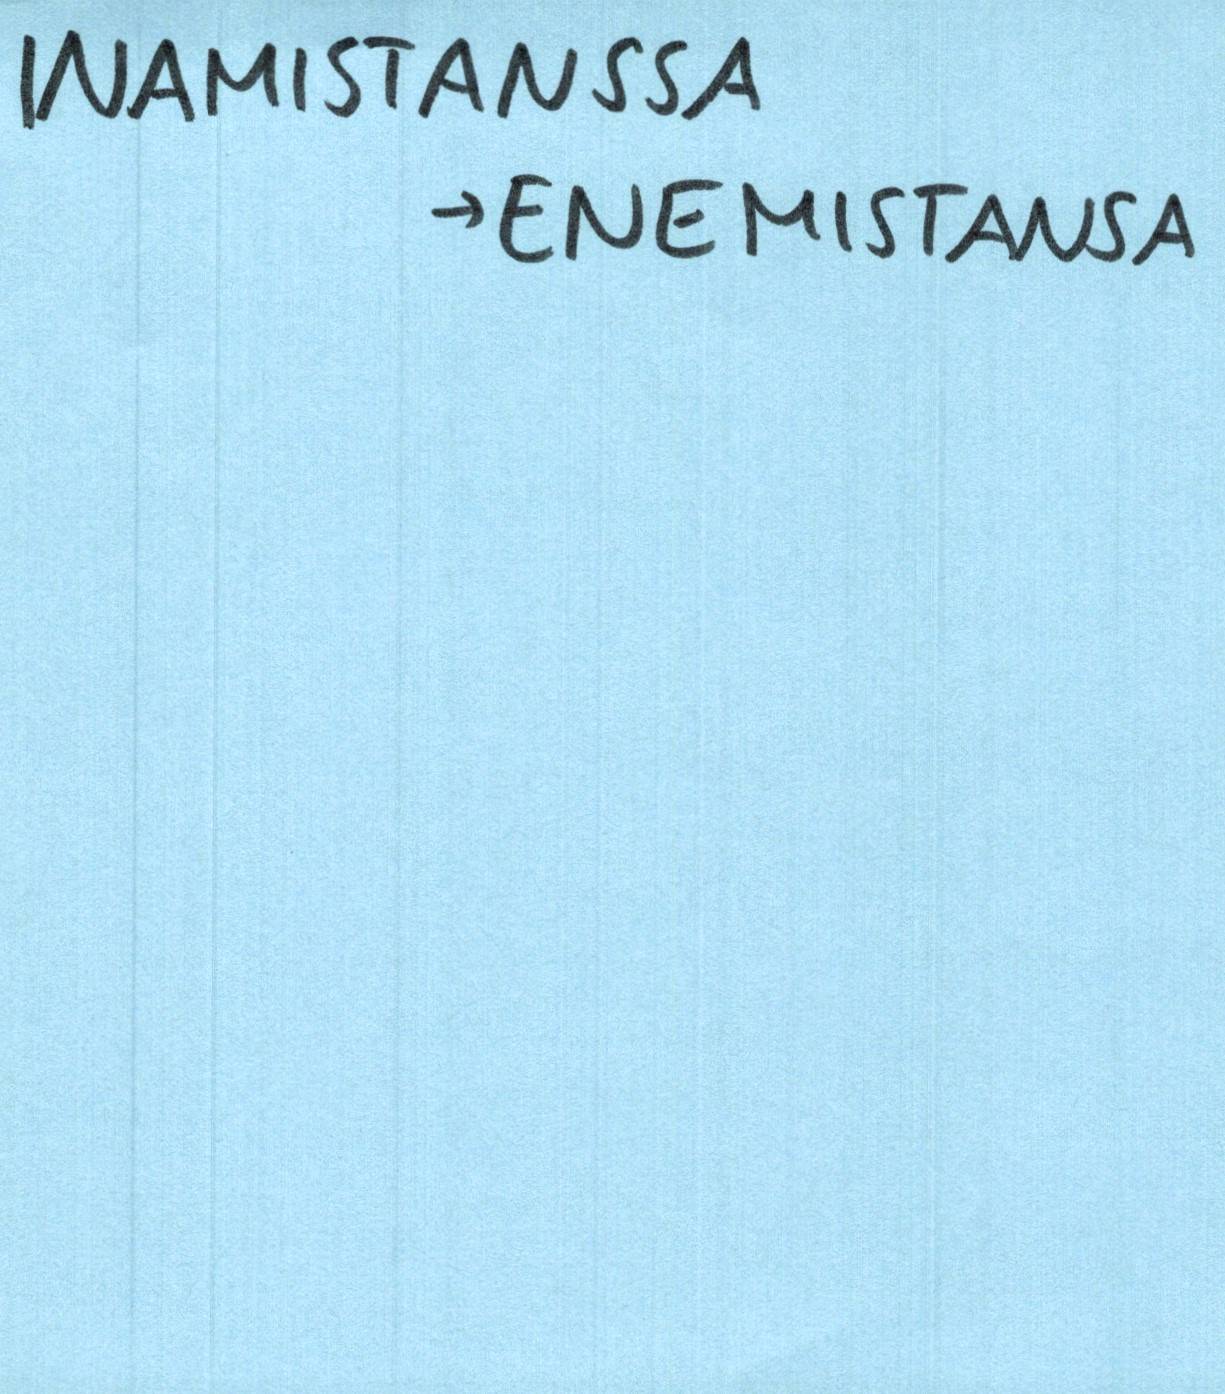 INAMISTANSSA
→ENEMISTANSA